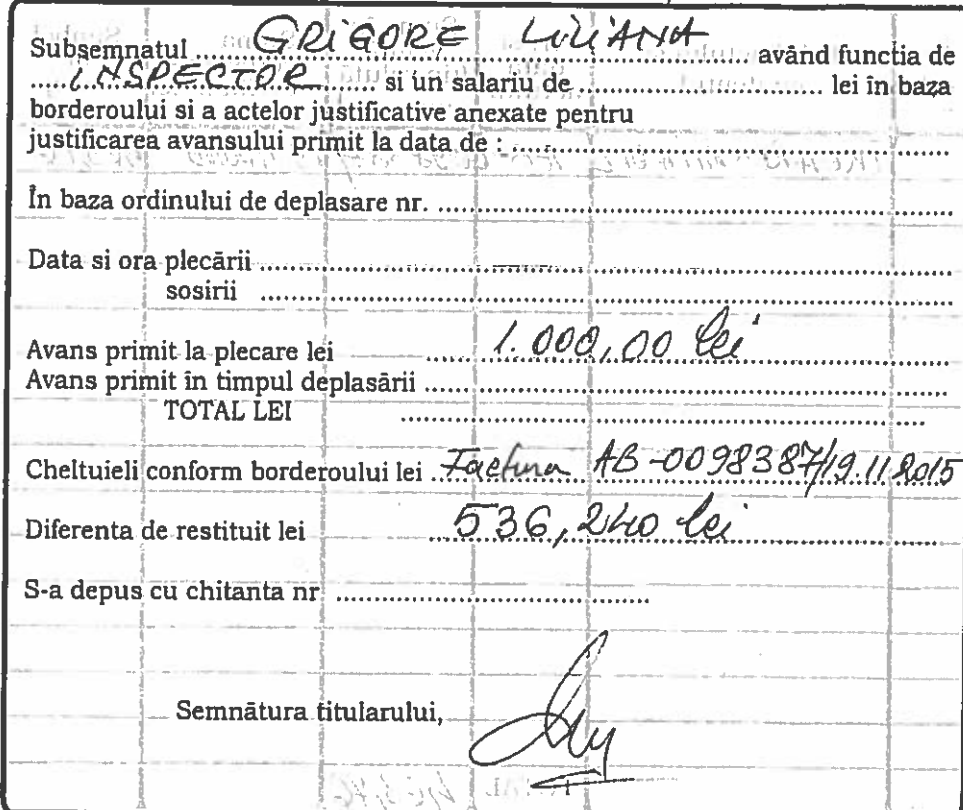 Subsemnatul ..... GRIGORE LILIANA ..... având functia de
..... INSPECTOR ..... si un salariu de ..... lei în baza
borderoului si a actelor justificative anexate pentru
justificarea avansului primit la data de : .....
În baza ordinului de deplasare nr. .....
Data si ora plecării .....
sosirii .....
Avans primit la plecare lei ..... 1.000,00 lei
Avans primit în timpul deplasării .....
TOTAL LEI .....
Cheltuieli conform borderoului lei ..Factura AB-0098387/19.11.2015
Diferenta de restituit lei ..... 536,240 lei
S-a depus cu chitanta nr .....
Semnătura titularului,